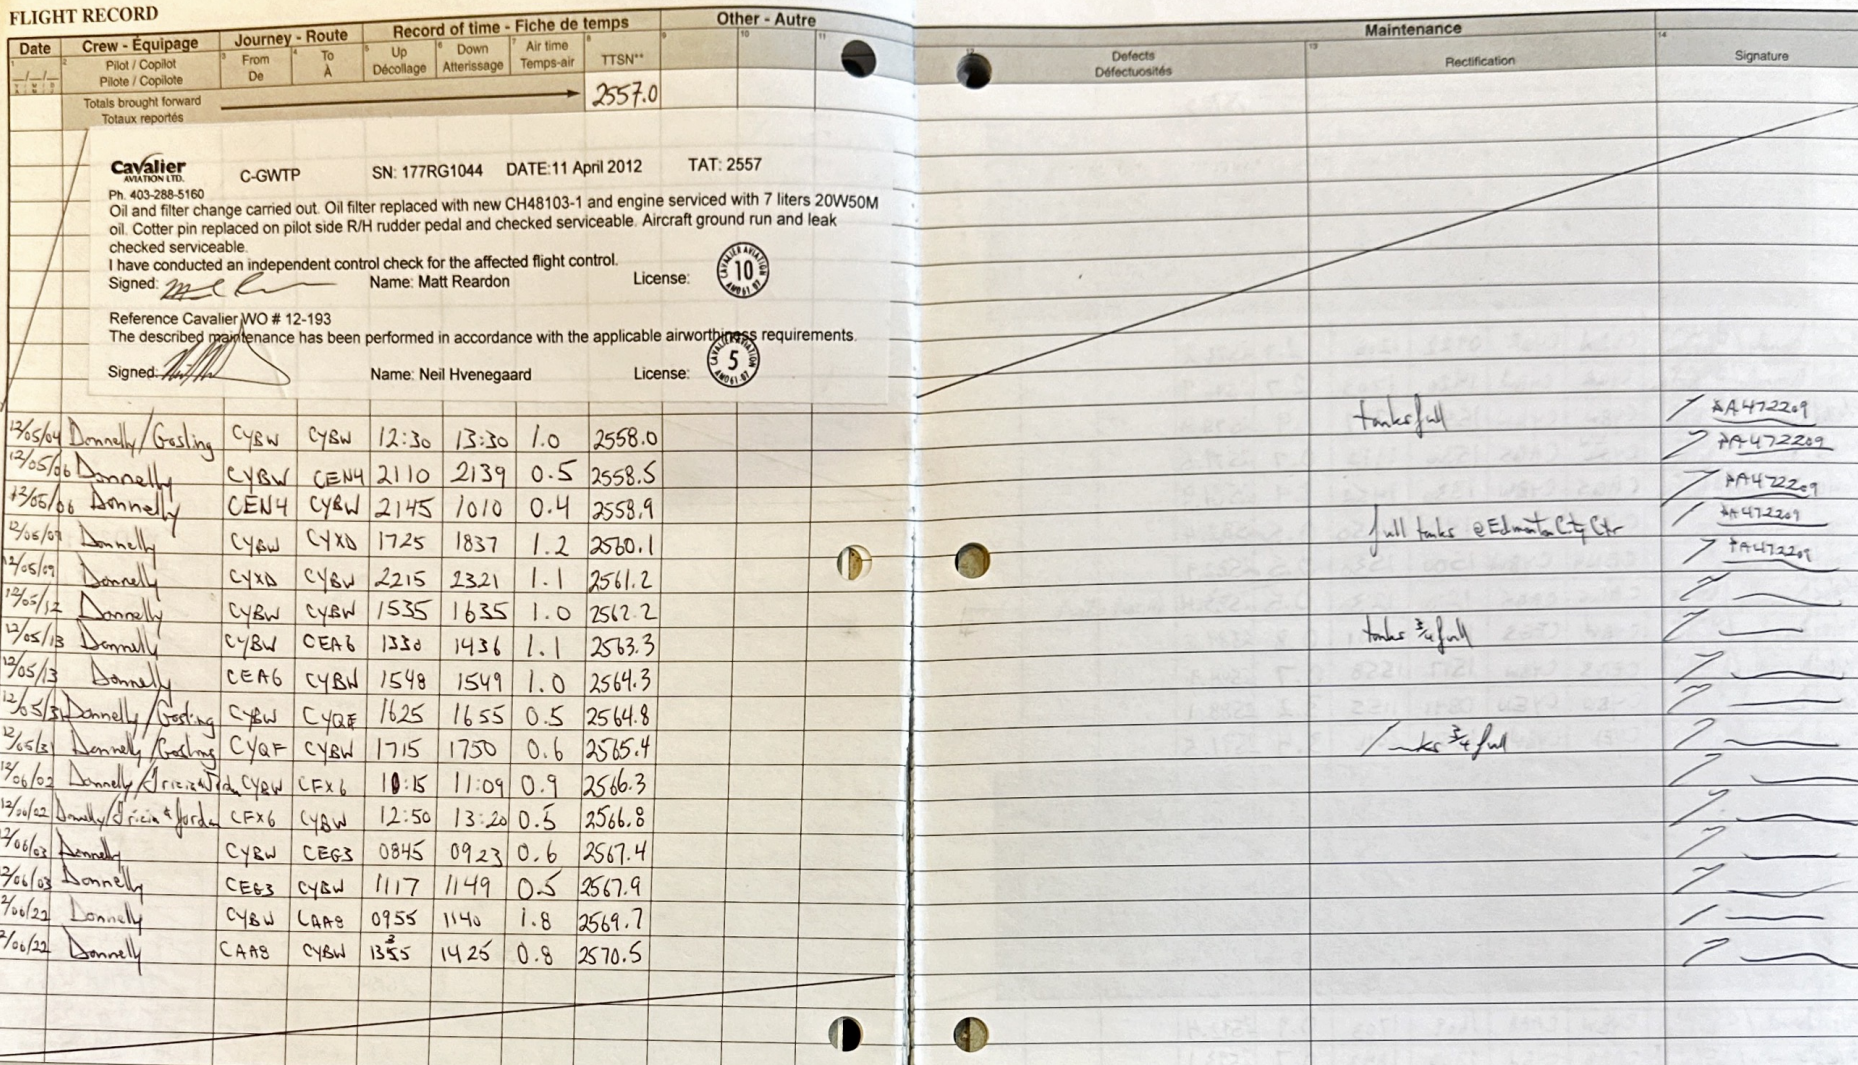 FLIGHT RECORD
Date Crew - Équipage Journey - Route Record of time - Fiche de temps Other - Autre Maintenance
1 2 Pilot / Copilot 3 From 4 To 5 Up 6 Down 7 Air time 8 TTSN** 9 10 11 12 Defects 13 Rectification 14 Signature
Pilote / Copilote De À Décollage Atterissage Temps-air Défectuosités
Totals brought forward 2557.0
Totaux reportés
Cavalier C-GWTP SN: 177RG1044 DATE:11 April 2012 TAT: 2557
AVIATION LTD.
Ph. 403-288-5160
Oil and filter change carried out. Oil filter replaced with new CH48103-1 and engine serviced with 7 liters 20W50M
oil. Cotter pin replaced on pilot side R/H rudder pedal and checked serviceable. Aircraft ground run and leak
checked serviceable.
I have conducted an independent control check for the affected flight control.
Signed: Name: Matt Reardon License: CAVALIER AVIATION 10 AMO 61-87
Reference Cavalier WO # 12-193
The described maintenance has been performed in accordance with the applicable airworthiness requirements.
Signed: Name: Neil Hvenegaard License: CAVALIER AVIATION 5 AMO 61-87
12/05/04 Donnelly/Gosling CYBW CYBW 12:30 13:30 1.0 2558.0 tanks full AA472209
12/05/06 Donnelly CYBW CEN4 2110 2139 0.5 2558.5 AA472209
12/05/06 Donnelly CEN4 CYBW 2145 1010 0.4 2558.9 AA472209
12/05/09 Donnelly CYBW CYXD 1725 1837 1.2 2560.1 full tanks @ Edmonton City Ctr AA472209
12/05/09 Donnelly CYXD CYBW 2215 2321 1.1 2561.2 AA472209
12/05/12 Donnelly CYBW CYBW 1535 1635 1.0 2562.2
12/05/13 Donnelly CYBW CEA6 1330 1436 1.1 2563.3 tanks 3/4 full
12/05/13 Donnelly CEA6 CYBW 1548 1549 1.0 2564.3
12/05/31 Donnelly/Gosling CYBW CYQF 1625 1655 0.5 2564.8
12/05/31 Donnelly/Gosling CYQF CYBW 1715 1750 0.6 2565.4 Tanks 3/4 full
12/06/02 Donnelly/ CYBW CFX6 10:15 11:09 0.9 2566.3
12/06/02 Donnelly/ CFX6 CYBW 12:50 13:20 0.5 2566.8
12/06/03 Donnelly CYBW CEG3 0845 0923 0.6 2567.4
12/06/03 Donnelly CEG3 CYBW 1117 1149 0.5 2567.9
2/06/22 Donnelly CYBW CAA8 0955 1140 1.8 2569.7
2/06/22 Donnelly CAA8 CYBW 1425 0.8 2570.5